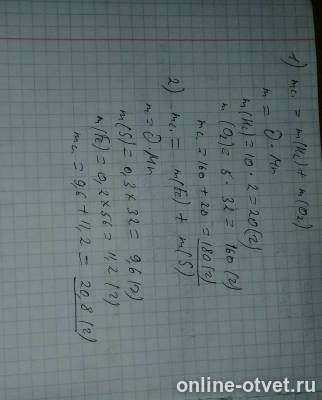 1) mс. = m(H₂) + m(O₂)
m = ∂ · Mn
m(H₂) = 10 · 2 = 20(г)
m(O₂) = 5 · 32 = 160(г)
mс. = 160 + 20 = 180(г)
2) mс. = m(Fe) + m(S)
m = ∂ · Mn
m(S) = 0,3 × 32 = 9,6(г)
m(Fe) = 0,2 × 56 = 11,2(г)
mс. = 9,6 + 11,2 = 20,8(г)
online-otvet.ru